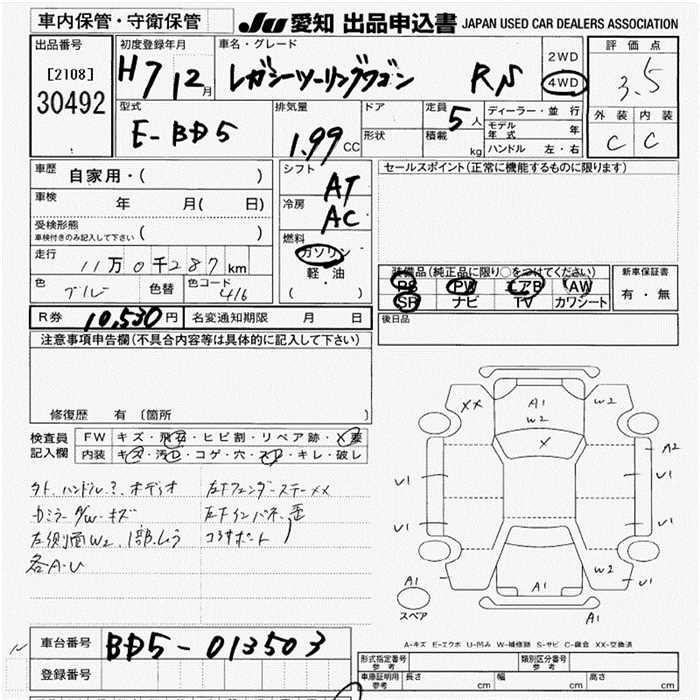 車内保管・守衛保管
JU 愛知 出品申込書 JAPAN USED CAR DEALERS ASSOCIATION
出品番号
[2108]
30492
初度登録年月
H7 12月
車名・グレード
レガシーツーリングワゴン RS
2WD
4WD
評価点
3.5
外装 内装
C C
型式
E-BD5
排気量
1.99 CC
ドア
形状
定員
5人
積載
kg
ディーラー・並行
モデル年式 年
ハンドル 左・右
車歴
自家用・( )
車検
年 月( 日)
受検形態
車検付きのみ記入して下さい ( )
走行
11万0千287km
色
ブルー
色替
色コード
416
シフト
AT
冷房
AC
燃料
ガソリン
軽・油
( )
セールスポイント(正常に機能するものに限ります)
装備品(純正品に限り○をつけてください)
PS PW エアB AW
SR ナビ TV カワシート
新車保証書
有・無
R券 10,530円
名変通知期限 月 日
後日品
注意事項申告欄(不具合内容等は具体的に記入して下さい)
修復歴 有〔箇所 〕
検査員記入欄
FW キズ・飛石・ヒビ割・リペア跡・X要
内装 キズ・汚レ・コゲ・穴・スレ・キレ・破レ
各A・U
XX
A1
W2
W2
X
A2
U1
U1
U1
U1
W2
U1
A1
A1
A1
スペア
A-キズ E-エクボ U-凹み W-補修跡 S-サビ C-腐合 XX-交換済
車台番号 BD5-013503
登録番号
形式指定番号
参考
類別区分番号
参考
車庫証明用
参考
長さ cm
幅 cm
高さ cm